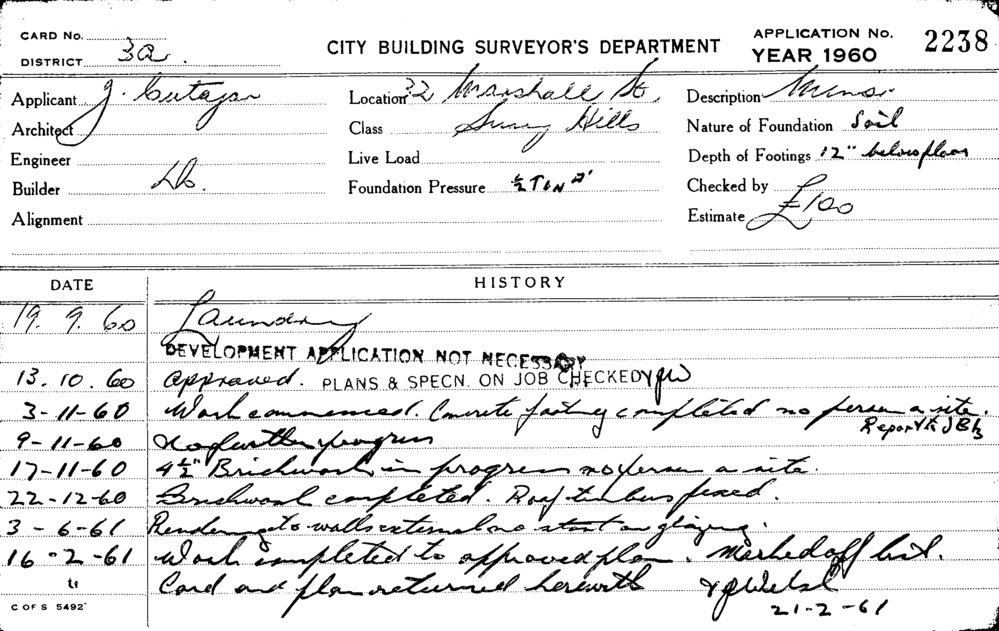 CARD No.
DISTRICT 3a.
CITY BUILDING SURVEYOR'S DEPARTMENT
APPLICATION No. 2238
YEAR 1960
Applicant J. Cutajar
Architect
Engineer
Builder Do.
Alignment
Location 32 Marshall St,
Class Surry Hills
Live Load
Foundation Pressure ½ TON
Description Minor
Nature of Foundation Soil
Depth of Footings 12" below floor
Checked by
Estimate £100
DATE HISTORY
19. 9. 60 Laundry
DEVELOPMENT APPLICATION NOT NECESSARY
13. 10. 60 Approved. PLANS & SPECN. ON JOB CHECKED
3-11-60 Work commenced. Concrete footing completed no person on site.
Report
9-11-60 No further progress
17-11-60 4½" Brickwork in progress no person on site.
22-12-60 Brickwork completed. Roof timbers fixed.
3-6-61 Rendering to walls external no start on glazing.
16-2-61 Work completed to approved plan. Marked off list.
" Card and plan returned herewith
21-2-61
C OF S 5492